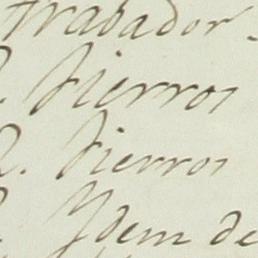 trabador
Fierros
Fierros
Ydem de